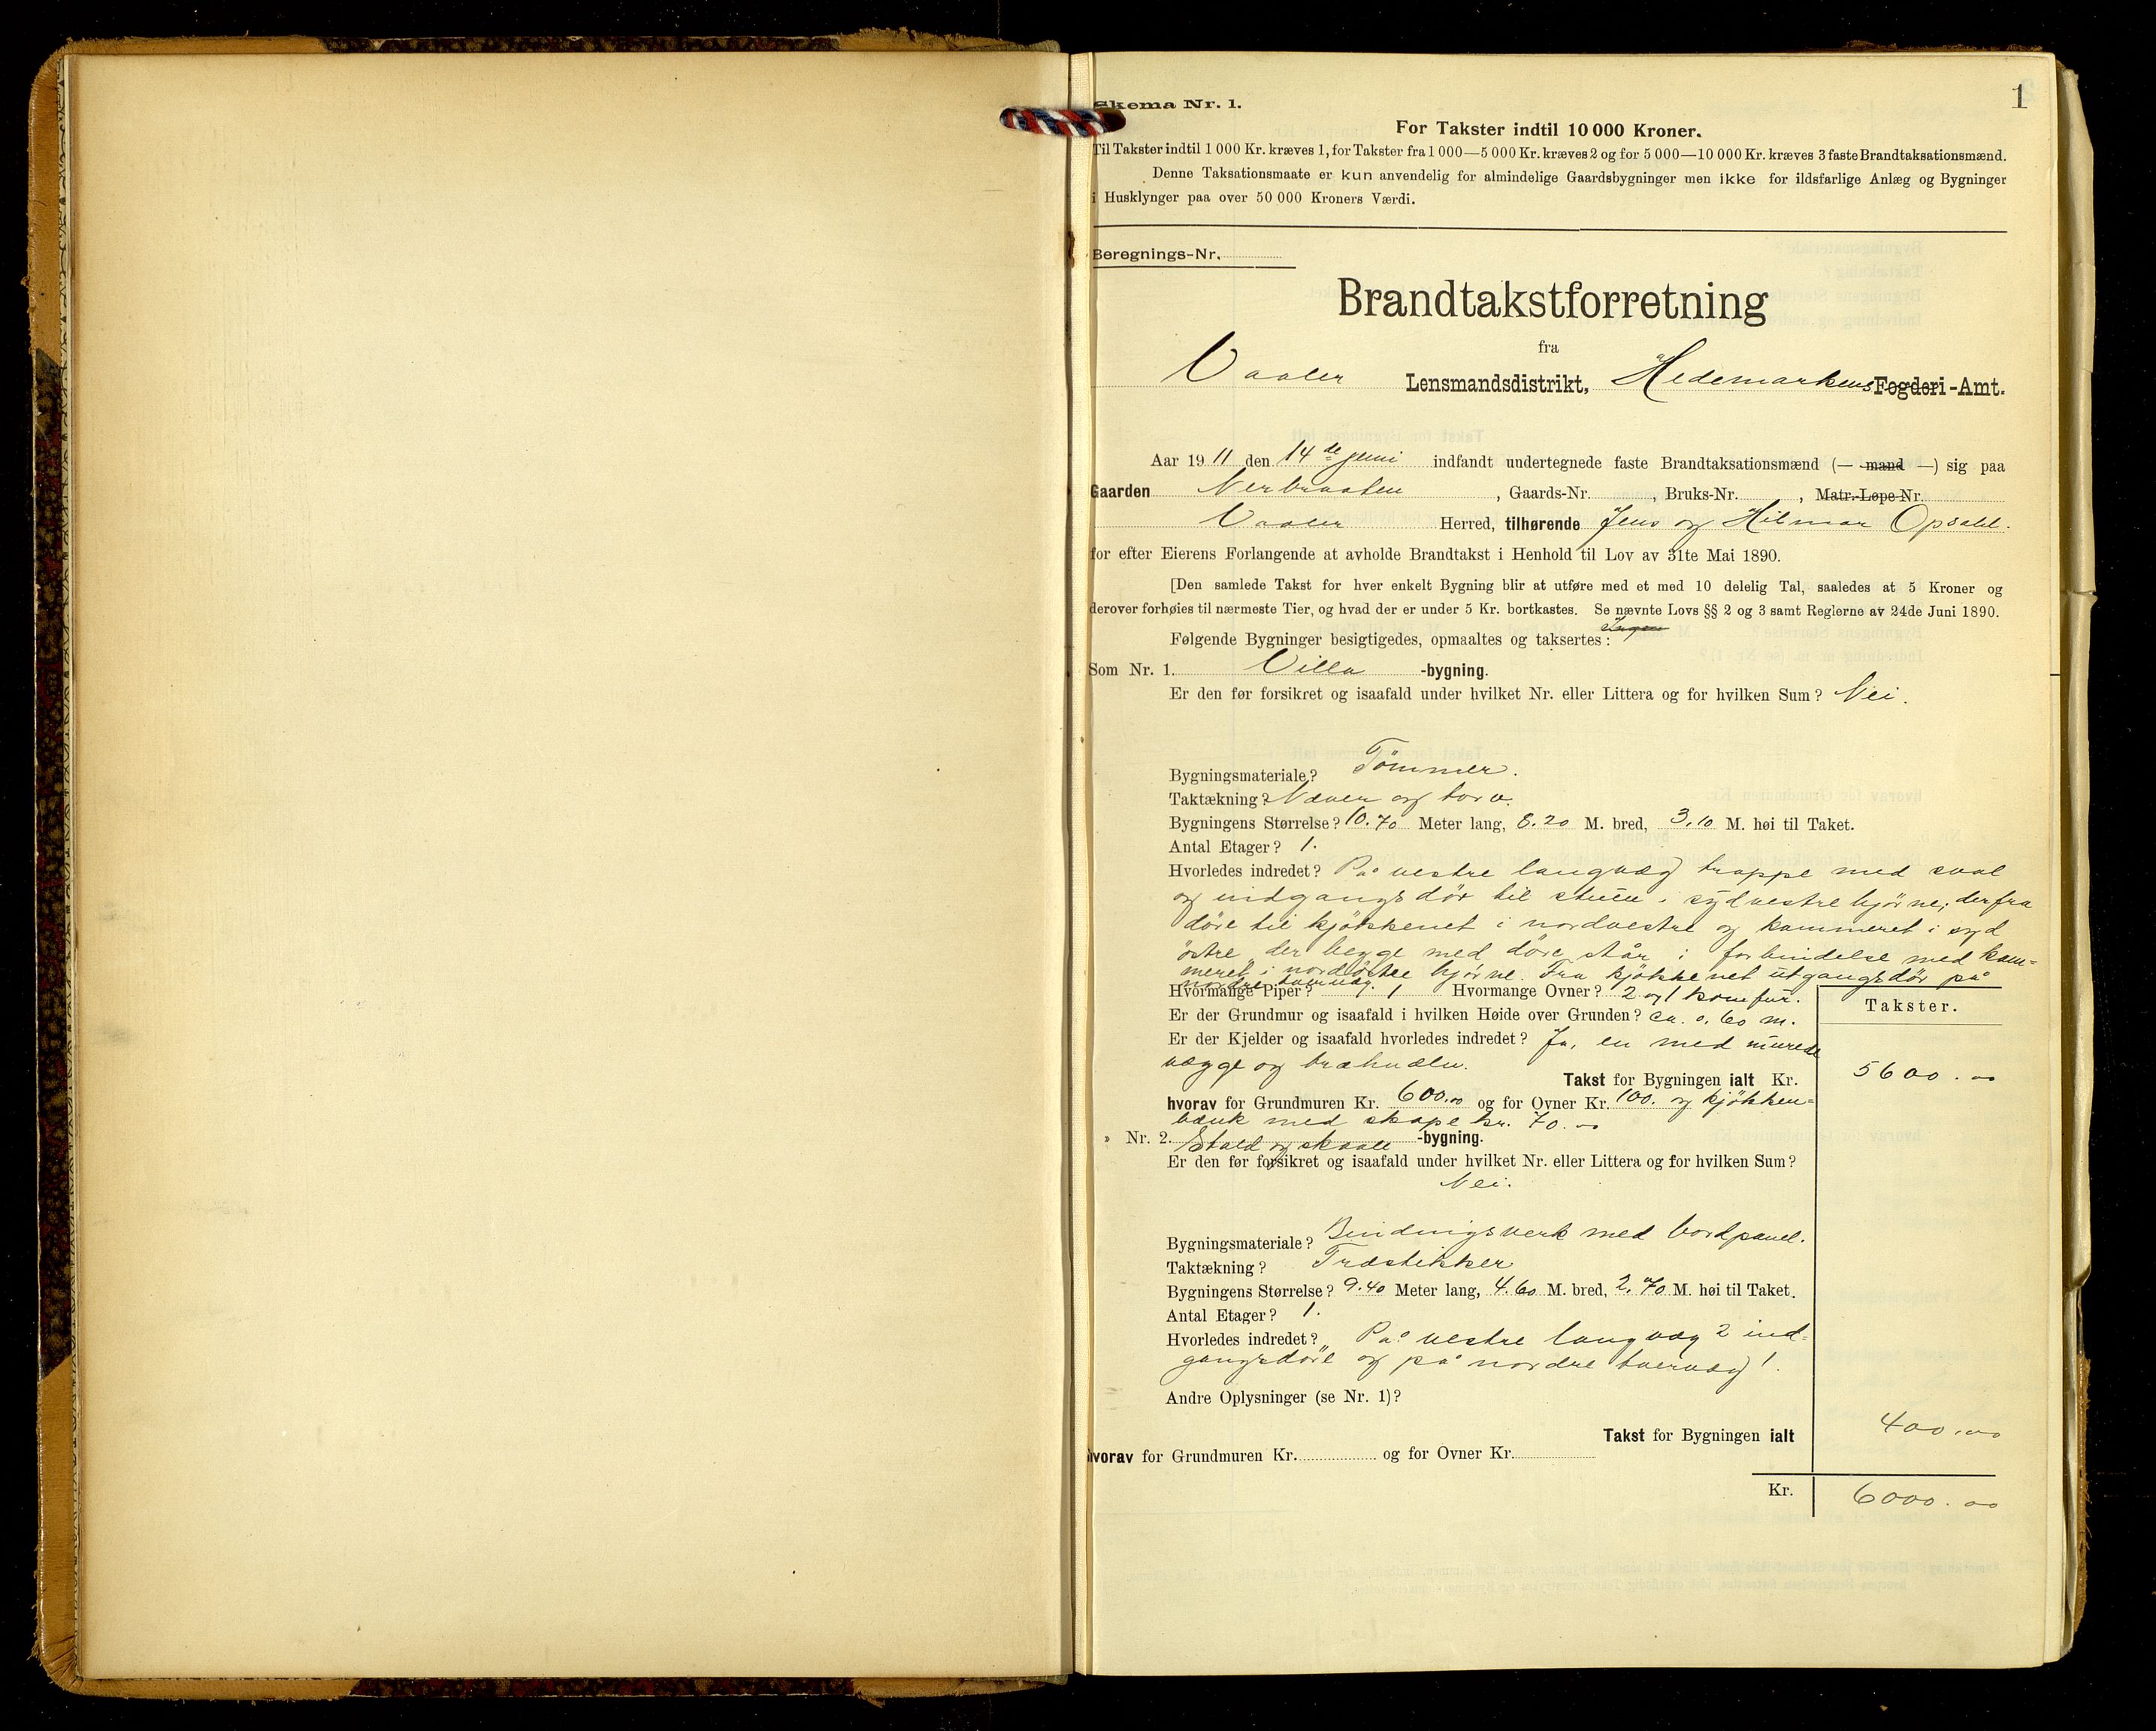 1
Skema Nr. 1.
For Takster indtil 10 000 Kroner.
Til Takster indtil 1 000 Kr. kræves 1, for Takster fra 1 000—5 000 Kr. kræves 2 og for 5 000—10 000 Kr. kræves 3 faste Brandtaksationsmænd.
Denne Taksationsmaate er kun anvendelig for almindelige Gaardsbygninger men ikke for ildsfarlige Anlæg og Bygninger
i Husklynger paa over 50 000 Kroners Værdi.
Beregnings-Nr.
Brandtakstforretning
fra
Vaaler Lensmandsdistrikt, Hedemarkens Fogderi-Amt.
Aar 1911 den 14de juni indfandt undertegnede faste Brandtaksationsmænd (— mand —) sig paa
Gaarden Nerbraaten, Gaards-Nr. , Bruks-Nr. , Matr.-Løpe-Nr.
Vaaler Herred, tilhørende Jens og Hilmar Opsahl.
for efter Eierens Forlangende at avholde Brandtakst i Henhold til Lov av 31te Mai 1890.
[Den samlede Takst for hver enkelt Bygning blir at utføre med et med 10 delelig Tal, saaledes at 5 Kroner og
derover forhøies til nærmeste Tier, og hvad der er under 5 Kr. bortkastes. Se nævnte Lovs §§ 2 og 3 samt Reglerne av 24de Juni 1890.
Følgende Bygninger besigtigedes, opmaaltes og taksertes: Ingen
Som Nr. 1. Villa -bygning.
Er den før forsikret og isaafald under hvilket Nr. eller Littera og for hvilken Sum? Nei.
Bygningsmateriale? Tömmer.
Taktækning? Næver og torv.
Bygningens Størrelse? 10.70 Meter lang, 8.20 M. bred, 3.10 M. høi til Taket.
Antal Etager? 1.
Hvorledes indredet? På vestre langvæg trappe med sval
og indgangsdör til stuen i sydvestre hjörne; derfra
döre til kjökkenet i nordvestre og kammeret i syd
östre, der begge med döre står i forbindelse med kam=
meret i nordöstre hjörne. Fra kjökkenet utgangsdör på
nordre tvervæg.
Hvormange Piper? 1 Hvormange Ovner? 2 og 1 komfur.
Takster.
Er der Grundmur og isaafald i hvilken Høide over Grunden? ca. 0.60 m.
Er der Kjelder og isaafald hvorledes indredet? Ja, en med murede
vægge og træhvælv.
Takst for Bygningen ialt Kr. 5600.00
hvorav for Grundmuren Kr. 600.00 og for Ovner Kr. 100. og kjökken=
bænk med skape kr. 70.00
» Nr. 2. Stald og skaale -bygning.
Er den før forsikret og isaafald under hvilket Nr. eller Littera og for hvilken Sum?
Nei.
Bygningsmateriale? Bindingsverk med bordpanel.
Taktækning? Træstikker
Bygningens Størrelse? 9.40 Meter lang, 4.60 M. bred, 2.70 M. høi til Taket.
Antal Etager? 1.
Hvorledes indredet? På vestre langvæg 2 ind=
gangsdöre og på nordre tvervæg 1.
Andre Oplysninger (se Nr. 1)?
Takst for Bygningen ialt 400.00
hvorav for Grundmuren Kr. og for Ovner Kr.
Kr. 6000.00